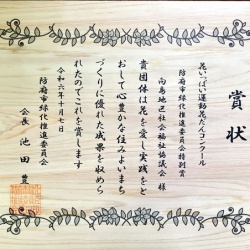 賞状
花いっぱい運動花だんコンクール
防府市緑化推進委員会特別賞
向島地区社会福祉協議会 様
貴団体は花を愛し実践をと
おして心豊かな住みよいまち
づくりに優れた成果を収めら
れたのでこれを賞します
令和六年十月七日
防府市緑化推進委員会
会長 池田 豊